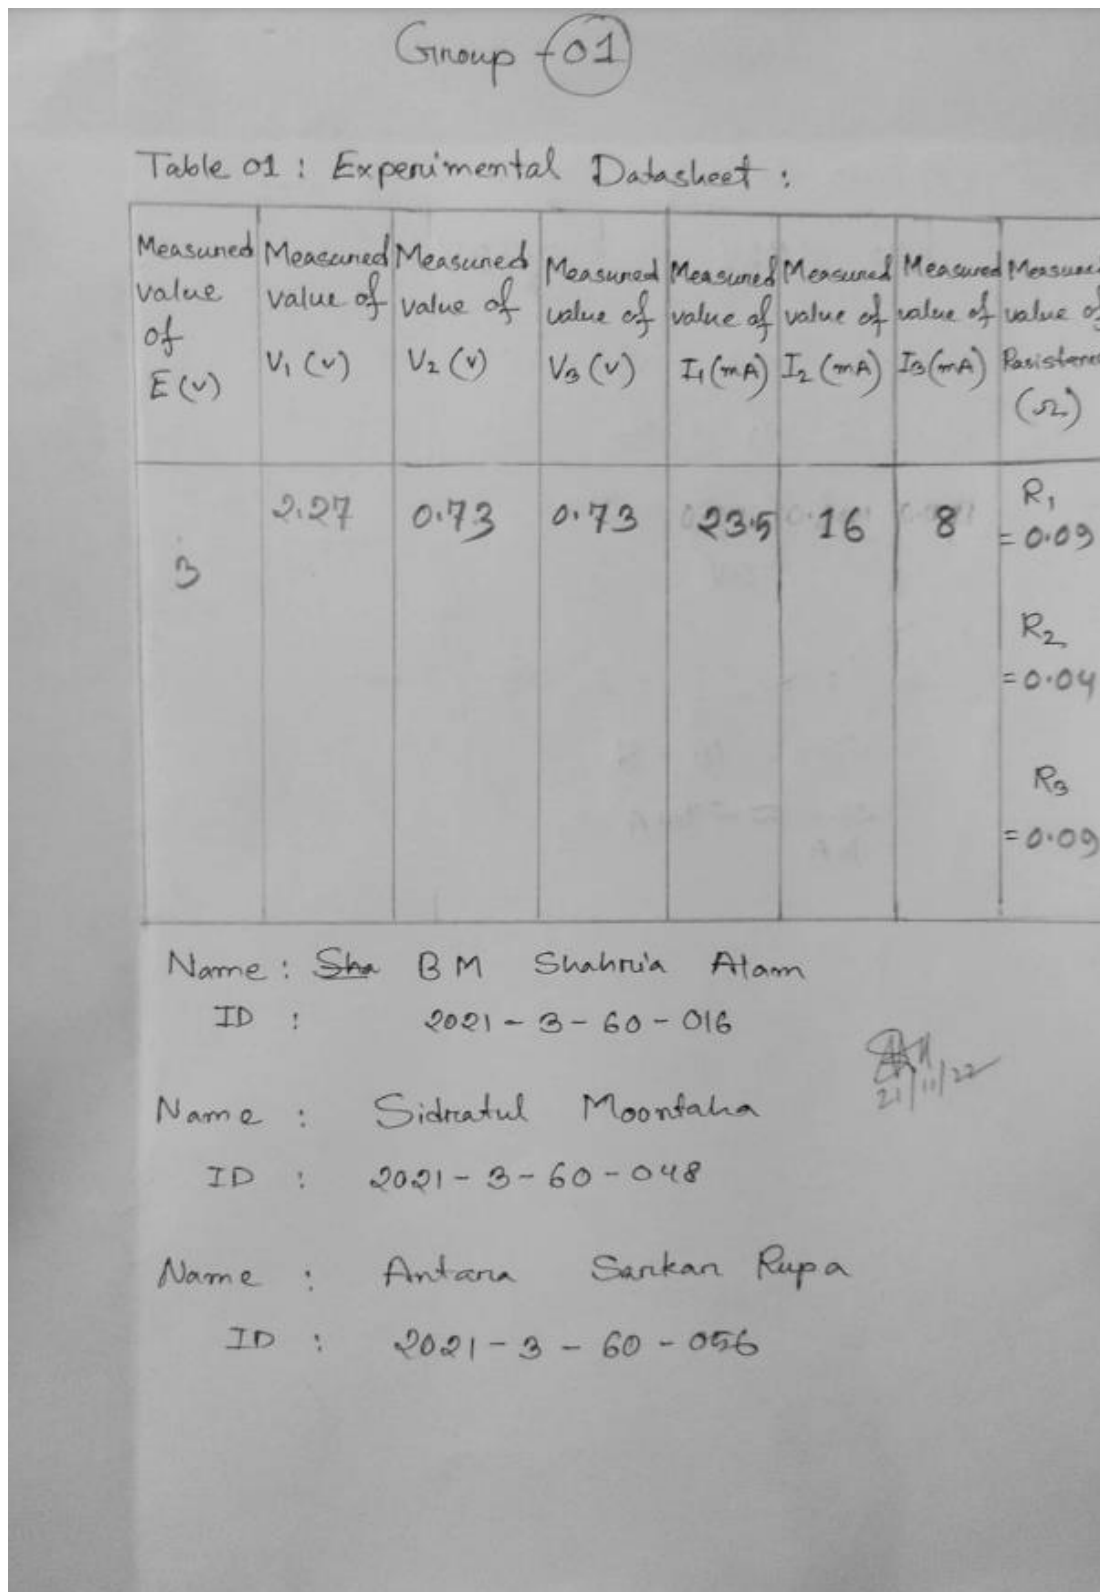 Group - 01
Table 01 : Experimental Datasheet :
Measured value of E (v)
Measured value of V₁ (v)
Measured value of V₂ (v)
Measured value of V₃ (v)
Measured value of I₁ (mA)
Measured value of I₂ (mA)
Measured value of I₃ (mA)
value of
(Ω)
3
2.27
0.73
0.73
23.5
16
8
R₁
= 0.09
R₂
= 0.04
R₃
= 0.09
Name : Sha BM Shahria Alam
ID : 2021-3-60-016
21/11/22
Name : Sidratul Moontaha
ID : 2021-3-60-048
Name : Antara Sarkar Rupa
ID : 2021-3-60-056